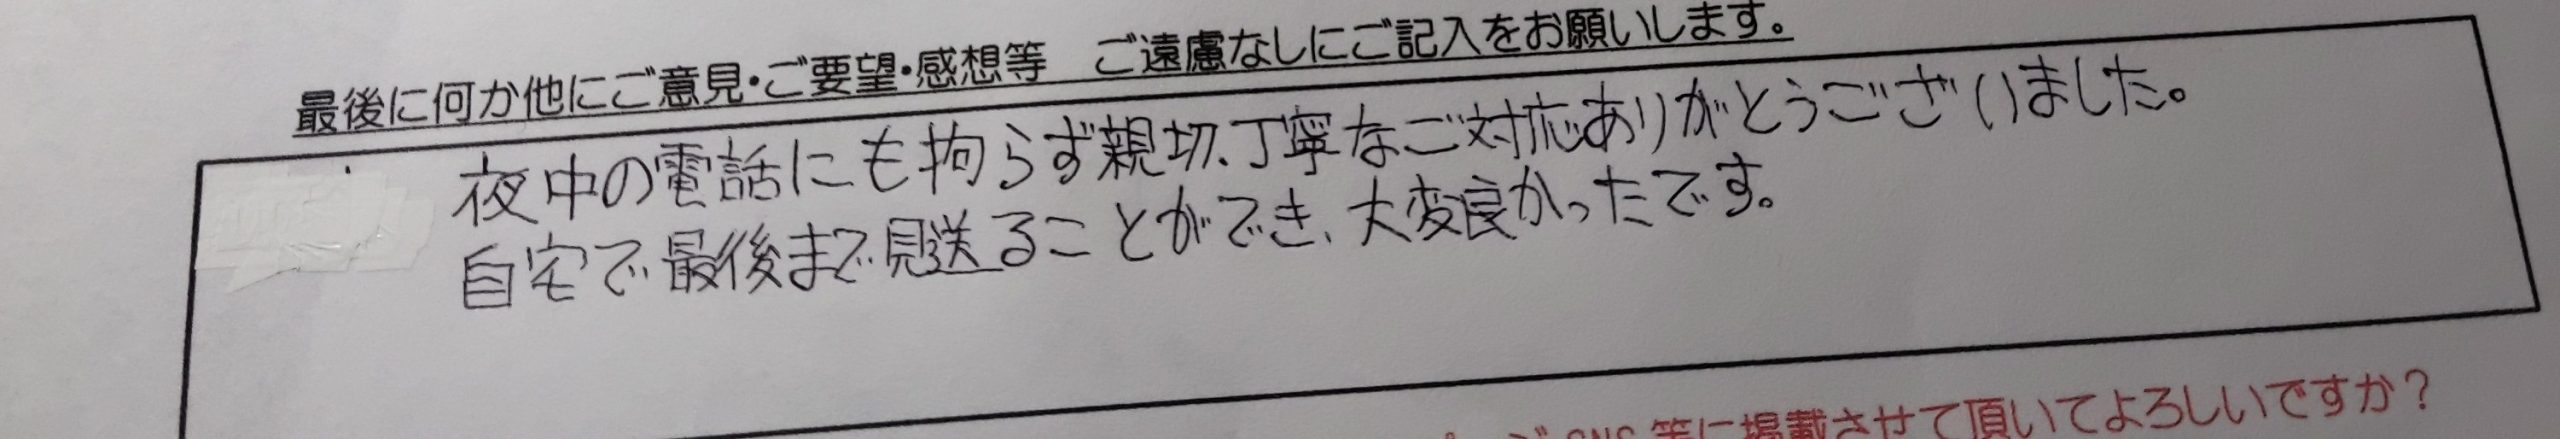 最後に何か他にご意見・ご要望・感想等　ご遠慮なしにご記入をお願いします。
夜中の電話にも拘らず親切、丁寧なご対応ありがとうございました。
自宅で最後まで見送ることができ、大変良かったです。
SNS等に掲載させて頂いてよろしいですか？